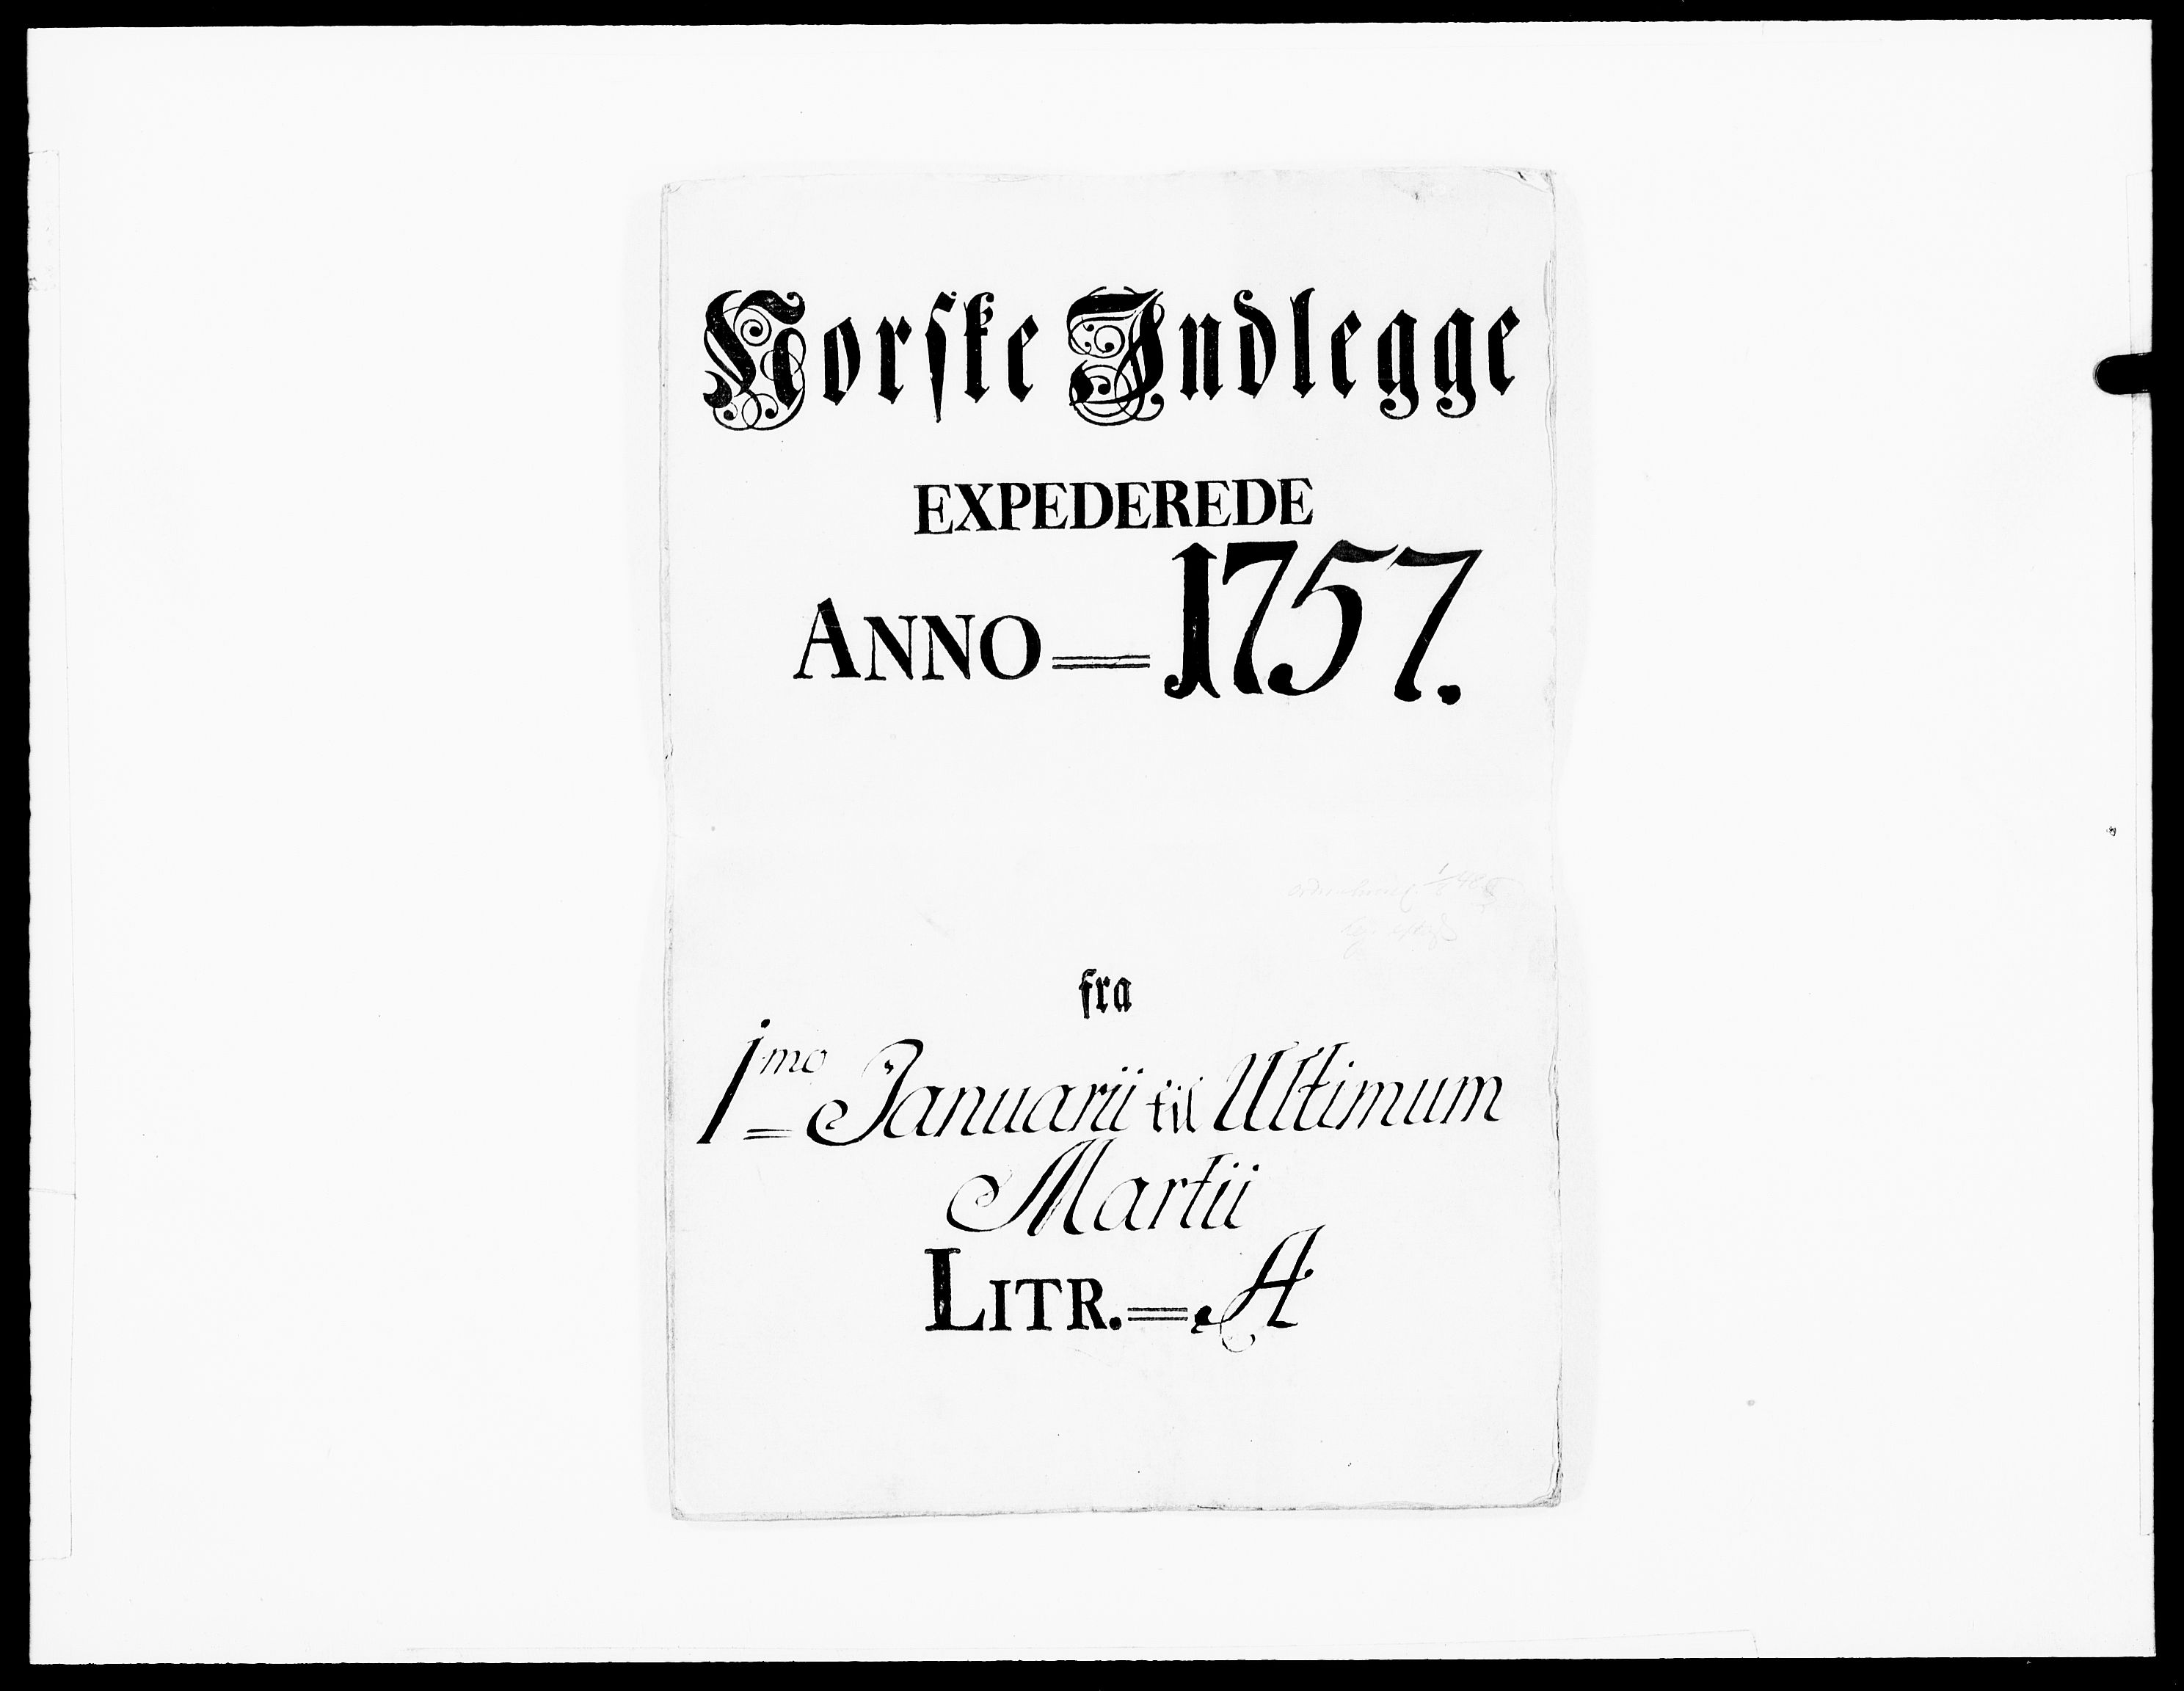 Norske Indlegge
EXPEDEREDE
ANNO = 1757.
fra
1mo Januarii til Ultimum
Martii
LITR. = A